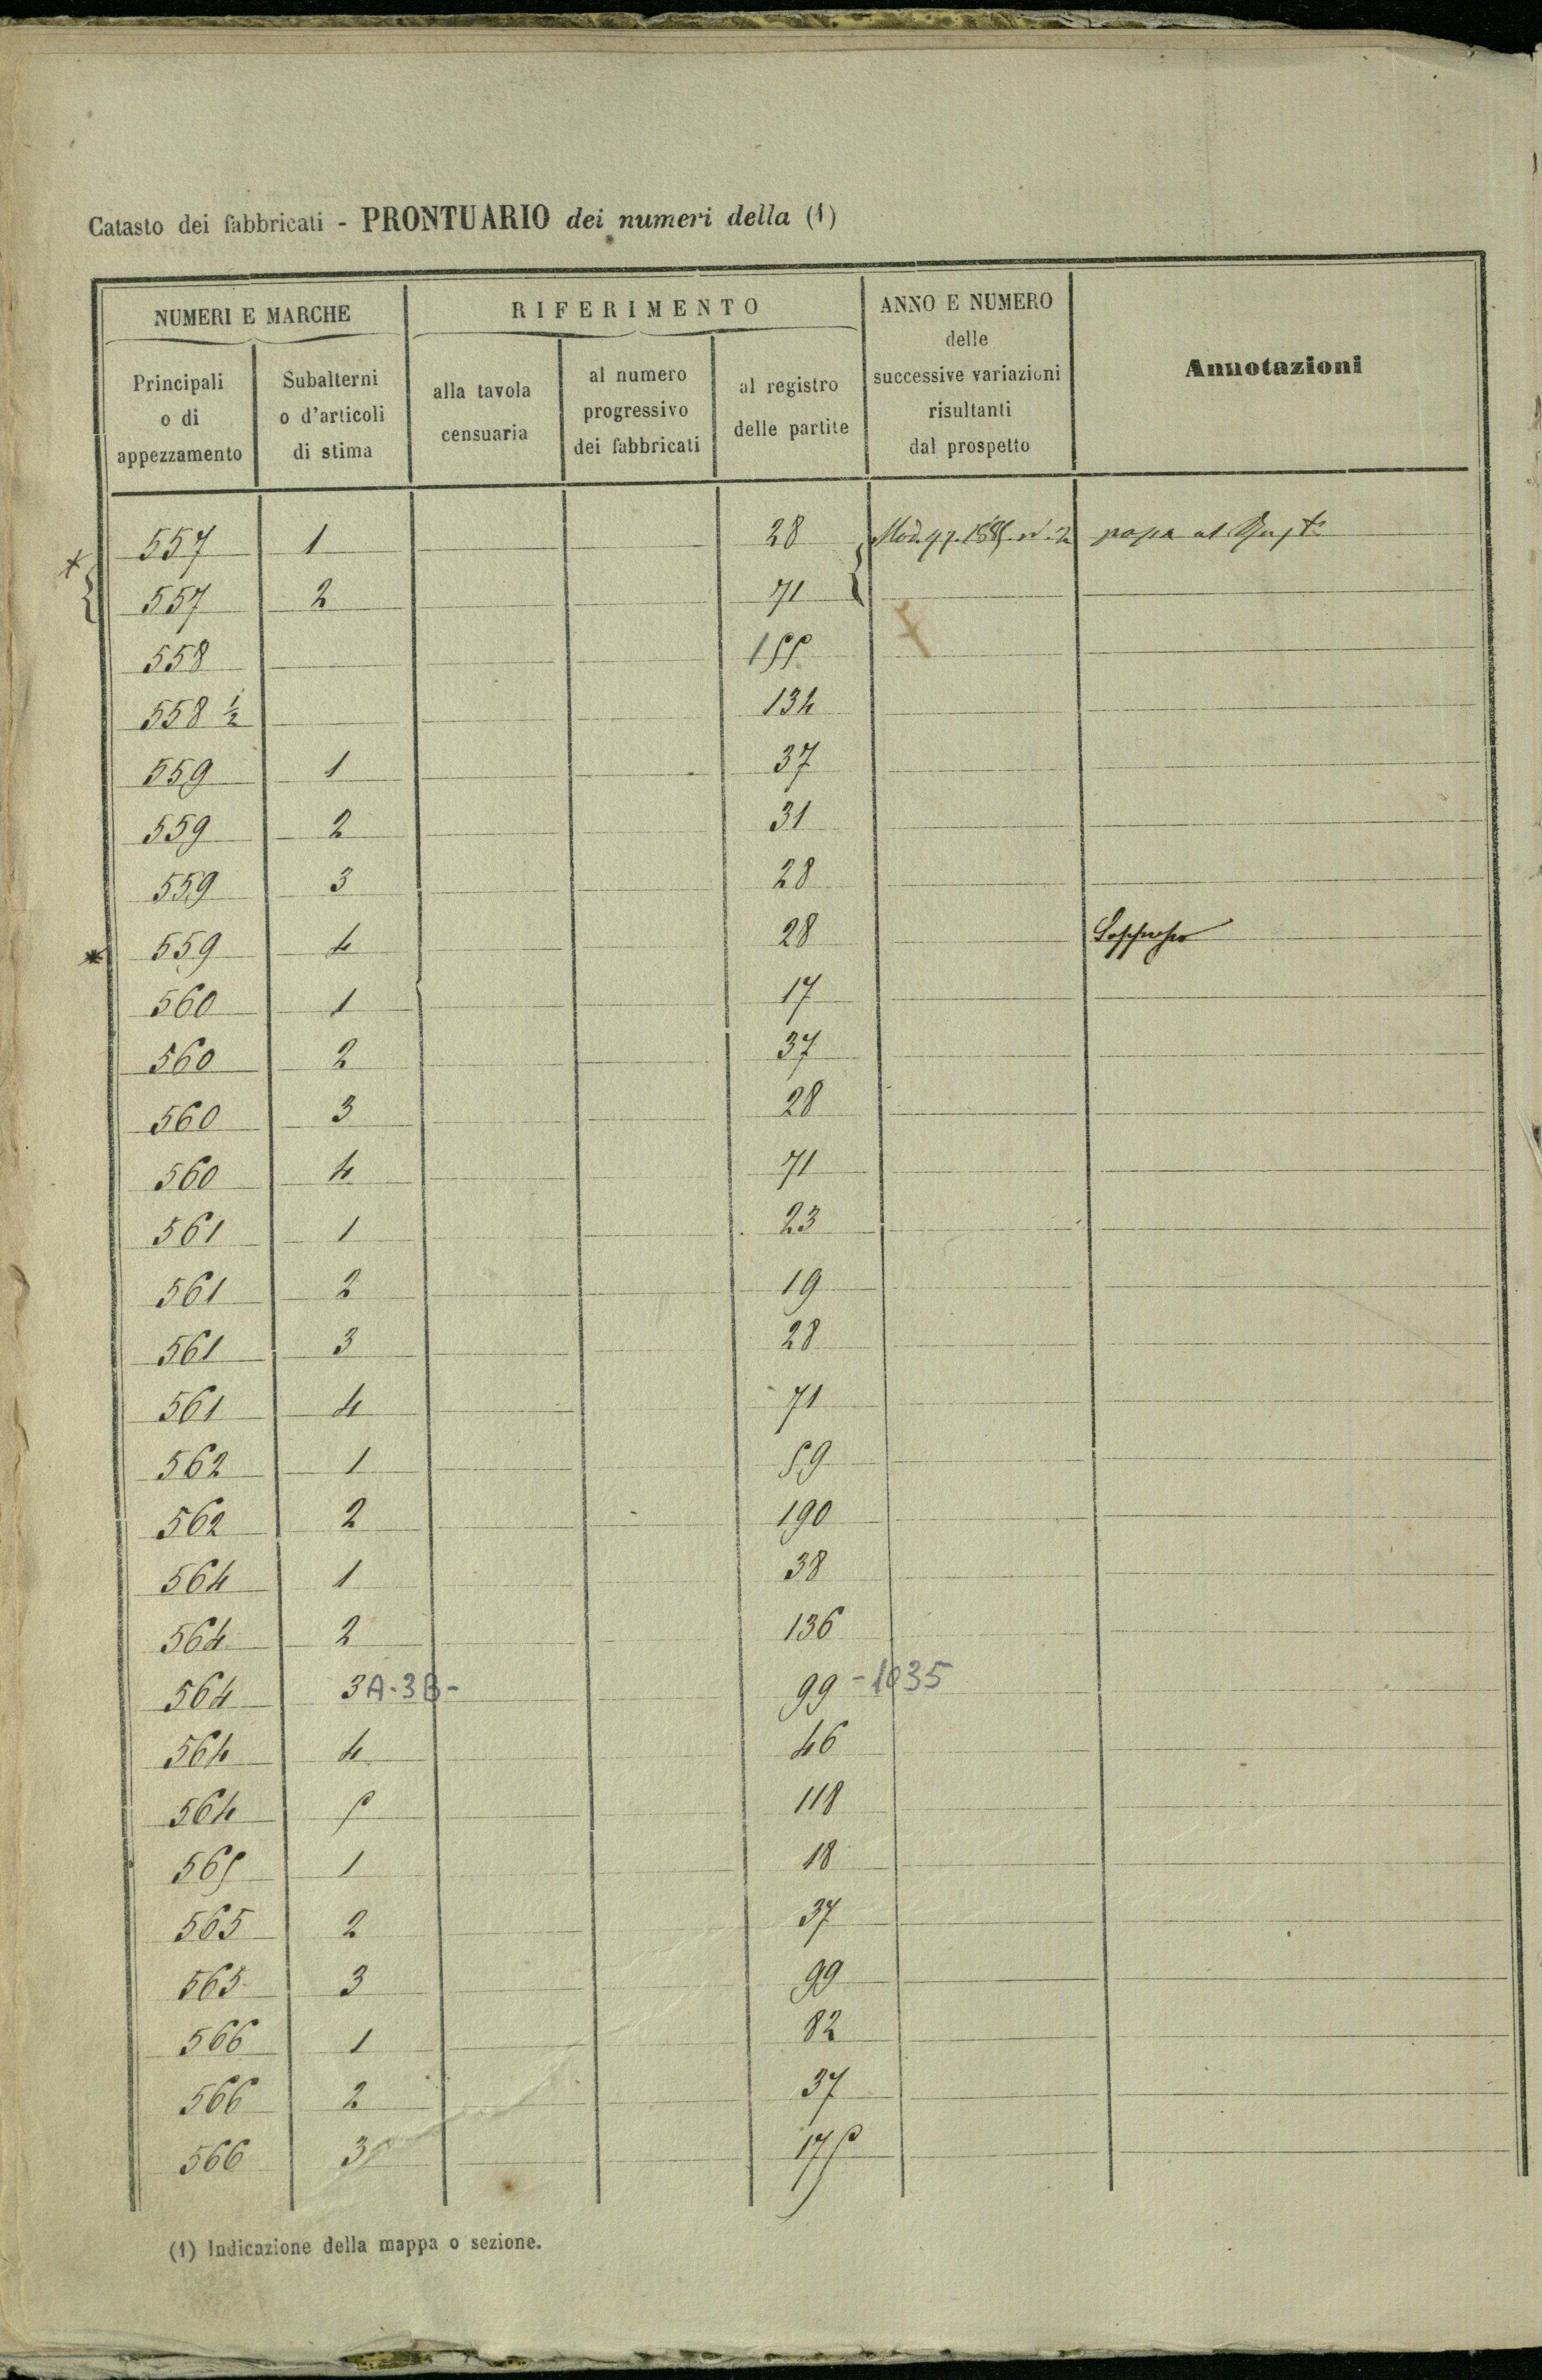 Catasto dei fabbricati - PRONTUARIO dei numeri della (1)
NUMERI E MARCHE
RIFERIMENTO
ANNO E NUMERO
delle
successive variazioni
risultanti
dal prospetto
Annotazioni
Principali
o di
appezzamento
Subalterni
o d'articoli
di stima
alla tavola
censuaria
al numero
progressivo
dei fabbricati
al registro
delle partite
557 1 28 Mod. 97. 1885. n. 2 passa al
557 2 71
558 155
558 ½ 134
559 1 37
559 2 31
559 3 28
559 4 28 Soppresso
560 1 17
560 2 37
560 3 28
560 4 71
561 1 23
561 2 19
561 3 28
561 4 71
562 1 59
562 2 190
564 1 38
564 2 136
564 3A-3B- 99 -1035
564 4 46
564 5 118
565 1 18
565 2 37
565 3 99
566 1 82
566 2 37
566 3 175
(1) Indicazione della mappa o sezione.